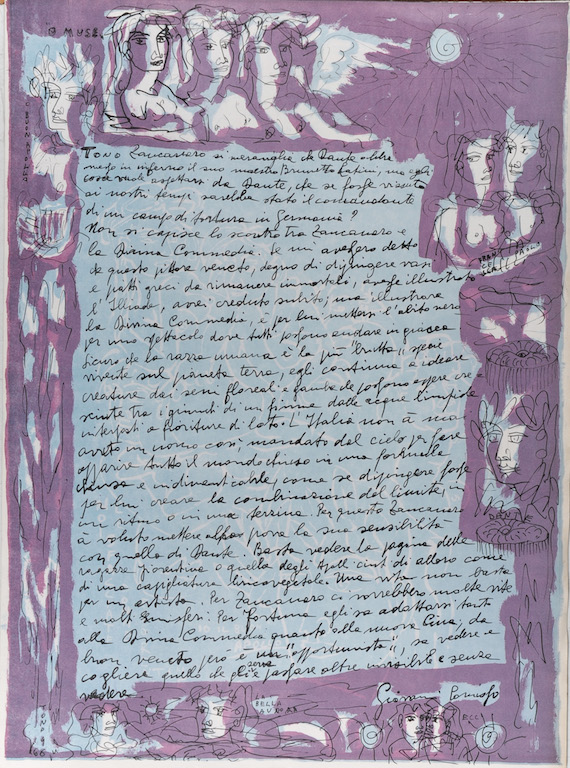 O MUSE
TONO Zancanaro si meraviglia che Dante abbia
messo in inferno il suo maestro Brunetto Latini, ma egli
cosa vuole aspettarsi da Dante, che se fosse vissuto
ai nostri tempi sarebbe stato il comandante
di un campo di tortura in Germania?
Non si capisce lo scontro tra Zancanaro e
la Divina Commedia. Se mi avessero detto
che questo pittore veneto, degno di dipingere vasi
e piatti greci da rimanere immortali, avesse illustrato
l'Iliade, avrei creduto subito, ma illustrare
la Divina Commedia, è per lui mettersi l'abito nero
per uno spettacolo dove tutti possono andare in giacca
Sicuro che la razza umana è la più "brutta" specie
vivente sul pianeta terra, egli continua a ideare
creature dai seni floreali e gambe che possono essere cre
sciute tra i giunchi di un fiume dalle acque limpide
interrotti a fioriture di loto. L'Italia non à mai
avuto un uomo così, mandato dal cielo per fare
apparire tutto il mondo chiuso in una
e indimenticabile, come se dipingere fosse
per lui creare la combinazione del limite, in
un ritmo o in una terzina. Per questo Zancanaro
à voluto mettere alla prova la sua sensibilità
con quella di Dante. Basta vedere la pagina delle
ragazze fiorentine o quella degli cinti di alloro come
di una capigliatura lirico vegetale. Una vita non basta
per un artista. Per Zancanaro ci vorrebbero molte vite
e molti emisferi. Per fortuna egli sa adattarsi tanto
alla Divina Commedia quanto alla nuova Cina, da
buon veneto però è un "opportunista", sa vedere e
cogliere quello che gli altri invisibile e senza
vedere
Giovanni Comisso
DANTE
TONO
66
LA
BELLA
AURORA